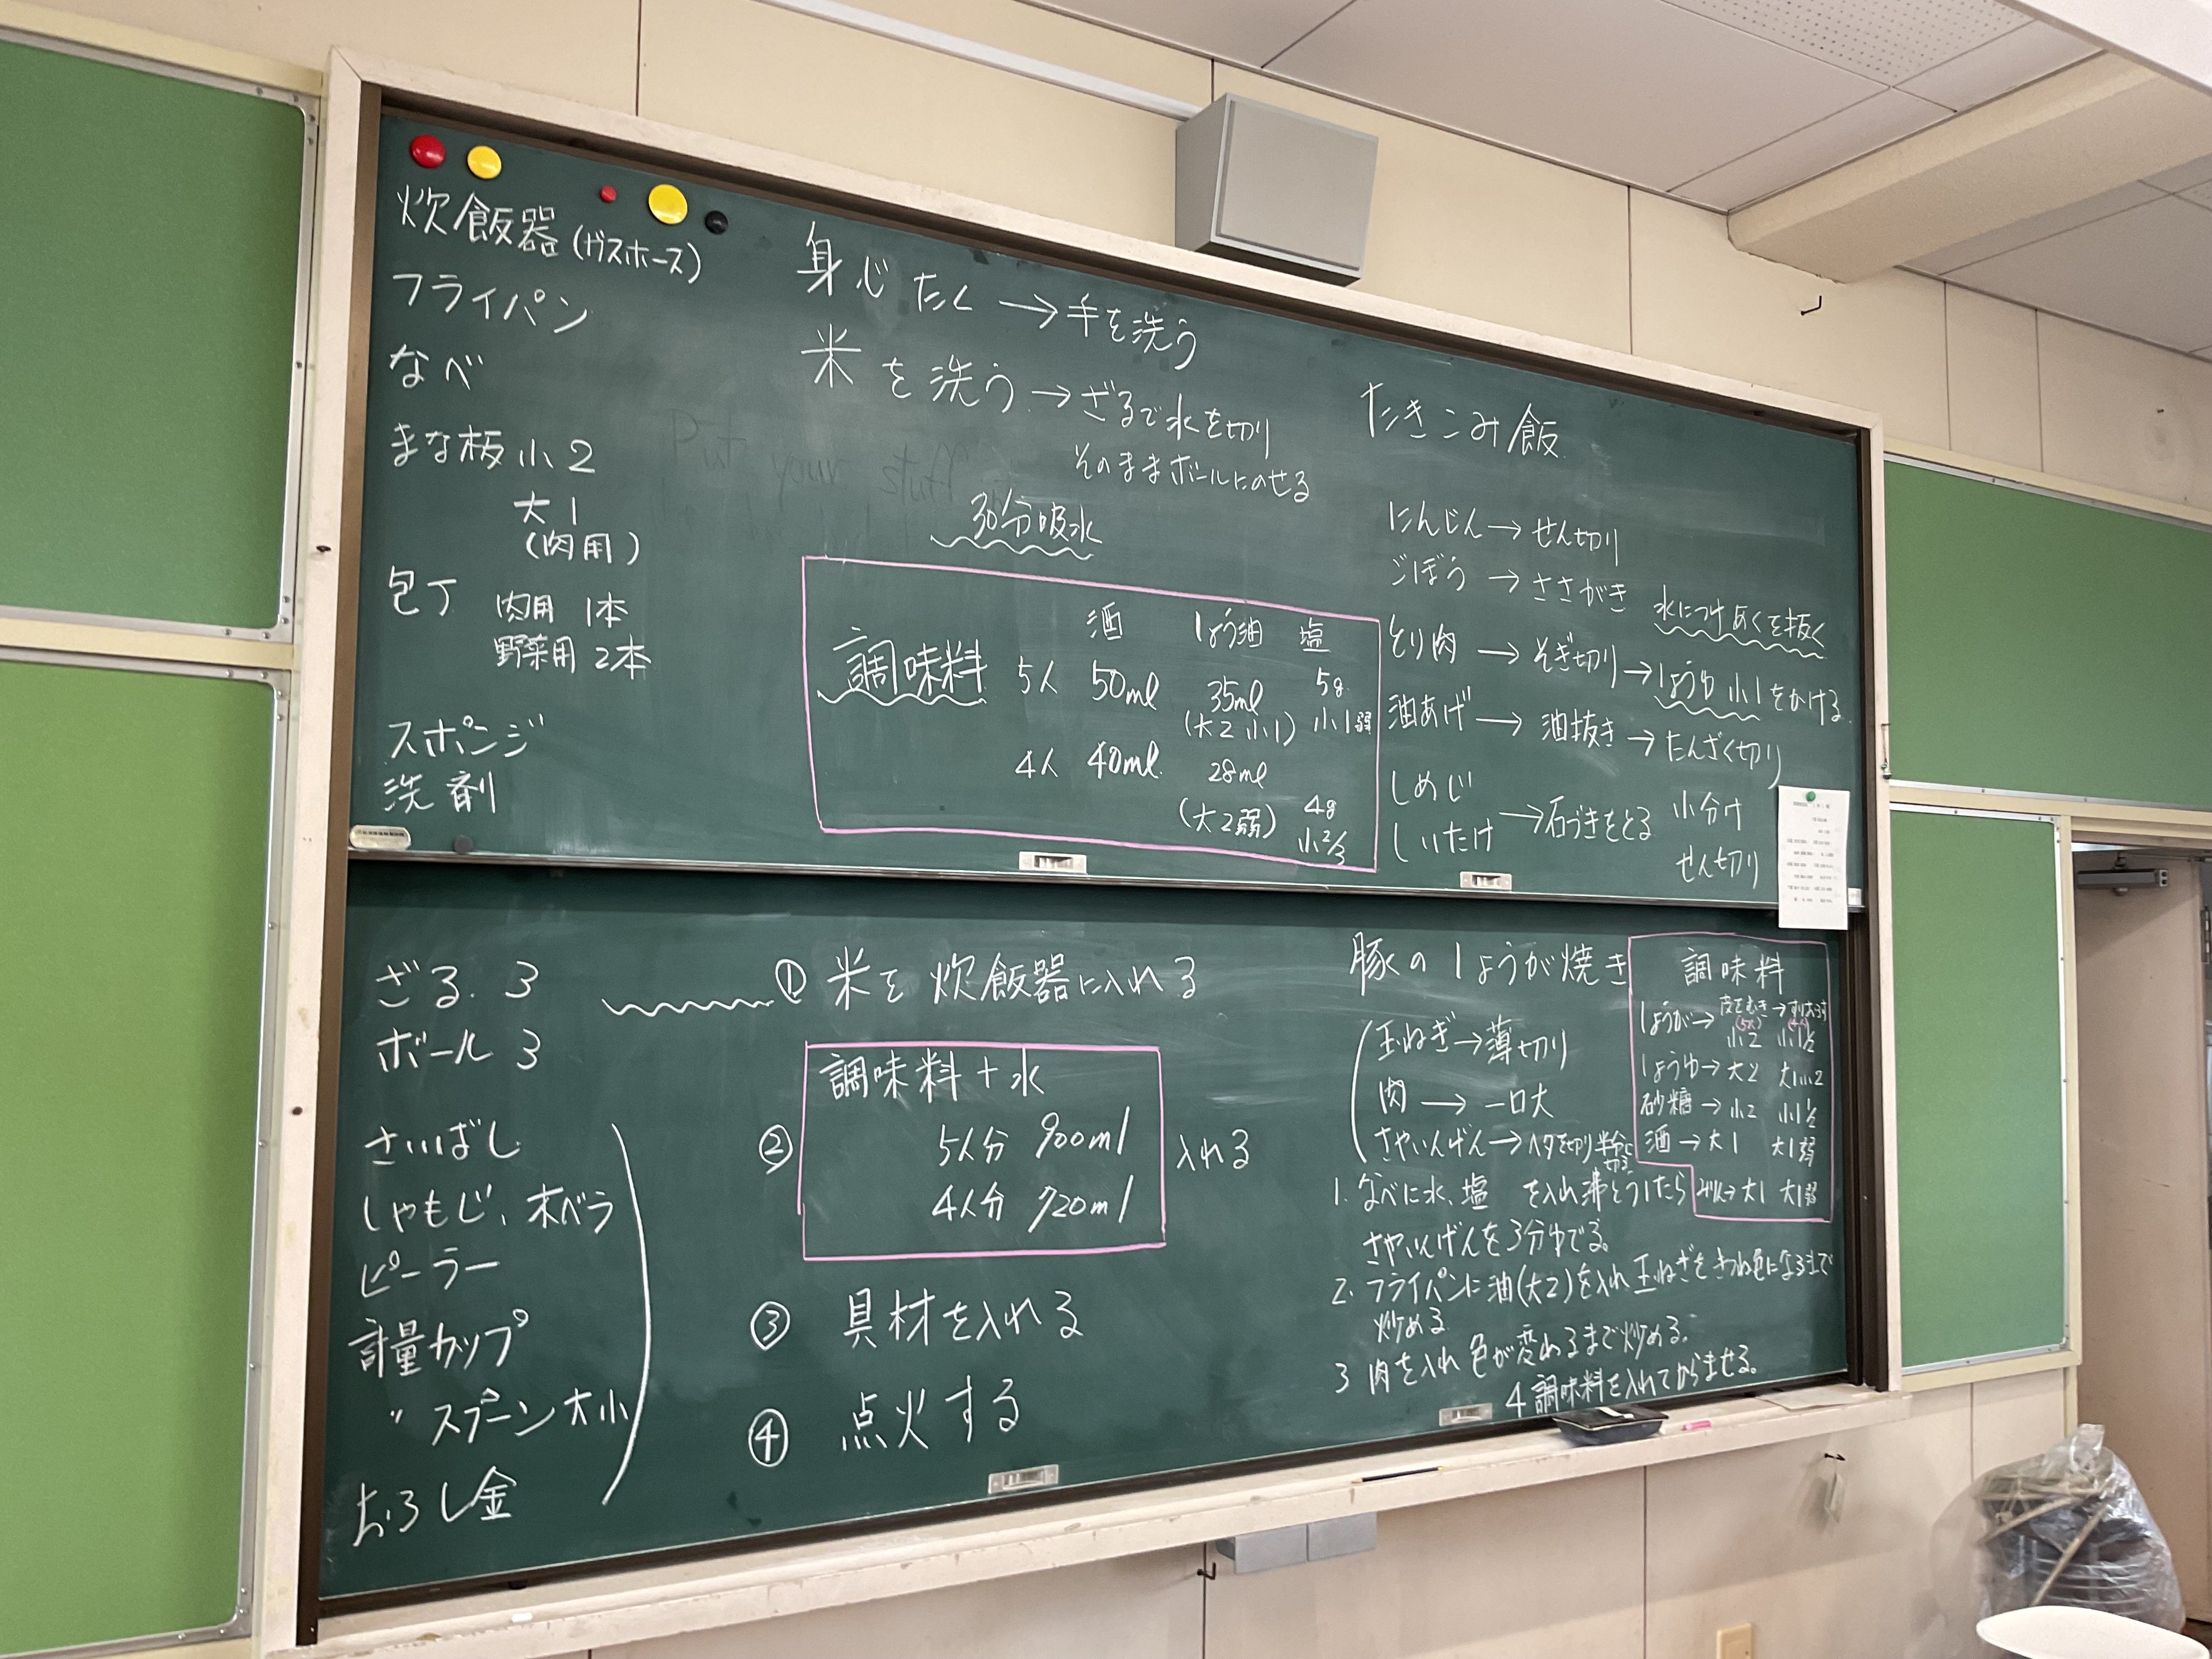 炊飯器(ガスホース)
フライパン
なべ
まな板 小2
大1
(肉用)
包丁 肉用 1本
野菜用 2本
スポンジ
洗剤
身じたく → 手を洗う
米を洗う → ざるで水を切り
そのままボールにのせる
Put your stuff
30分吸水
酒 しょう油 塩
調味料 5人 50ml 35ml 5g
(大2 小1) 小1弱
4人 40ml 28ml
(大2弱) 4g
小2/3
たきこみ飯
にんじん → せん切り
ごぼう → ささがき 水につけあくを抜く
とり肉 → そぎ切り → しょうゆ 小1をかける
油あげ → 油抜き → たんざく切り
しめじ 小分け
→ 石づきをとる
しいたけ せん切り
ざる. 3
ボール 3
さいばし
しゃもじ、木ベラ
ピーラー
計量カップ
〃 スプーン大小
おろし金
① 米を炊飯器に入れる
調味料+水
② 5人分 900ml 入れる
4人分 720ml
③ 具材を入れる
④ 点火する
豚のしょうが焼き
玉ねぎ → 薄切り
肉 → 一口大
さやいんげん → ヘタを切り半分に切る
1. なべに水、塩 を入れ沸とうしたら
さやいんげんを3分ゆでる。
2. フライパンに油(大2)を入れ玉ねぎをきつね色になるまで
炒める
3 肉を入れ色が変わるまで炒める。
4 調味料を入れてからませる。
調味料
しょうが → 皮をむき → すりおろす
(5人) (4人)
小2 小1½
しょうゆ → 大2 大1小2
砂糖 → 小2 小1½
酒 → 大1 大1弱
みりん → 大1 大1弱